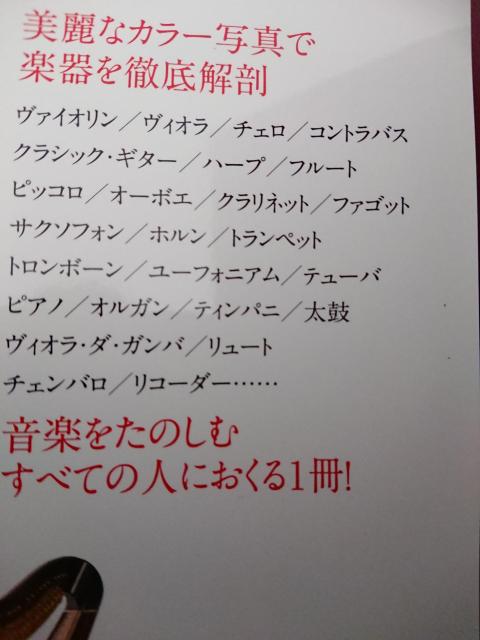 美麗なカラー写真で
楽器を徹底解剖
ヴァイオリン／ヴィオラ／チェロ／コントラバス
クラシック・ギター／ハープ／フルート
ピッコロ／オーボエ／クラリネット／ファゴット
サクソフォン／ホルン／トランペット
トロンボーン／ユーフォニアム／テューバ
ピアノ／オルガン／ティンパニ／太鼓
ヴィオラ・ダ・ガンバ／リュート
チェンバロ／リコーダー……
音楽をたのしむ
すべての人におくる1冊!